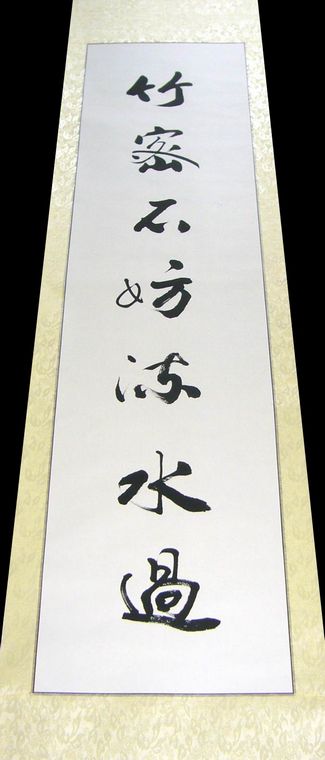 竹密不妨流水過